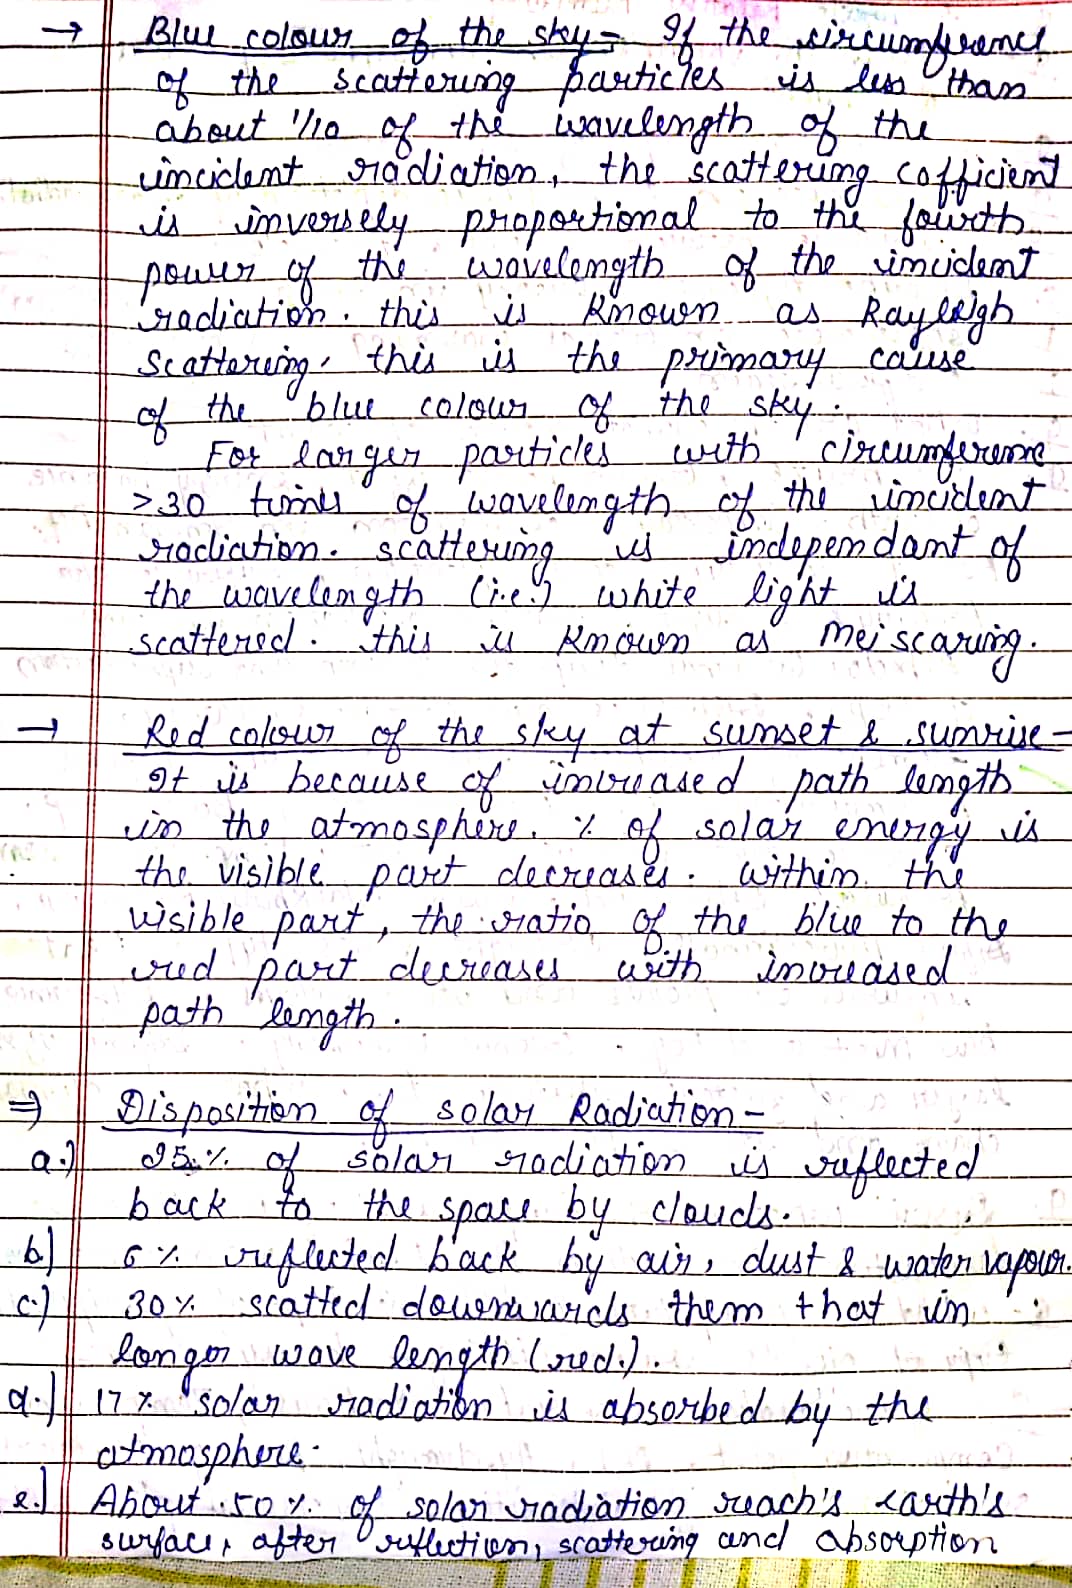 → Blue colour of the sky- If the circumference
of the scattering particles is less than
about 1/10 of the wavelength of the
incident radiation, the scattering cofficient
is inversely proportional to the fourth
power of the wavelength of the incident
radiation. this is known as Rayleigh
Scattering. this is the primary cause
of the blue colour of the sky.
For larger particles with circumference
>30 times of wavelength of the incident
radiation. scattering is independant of
the wavelength (i.e.) white light is
scattered. this is known as mei scaring.
→ Red colour of the sky at sunset & sunrise-
It is because of increased path length
in the atmosphere. % of solar energy is
the visible part decreases. within the
visible part, the ratio of the blue to the
red part decreases with increased
path length.
⇒ Disposition of solar Radiation-
a.) 25% of solar radiation is reflected
back to the space by clouds.
b) 6% reflected back by air, dust & water vapour.
c.) 30% scatted downwards them that in
longer wave length (red.).
d.) 17% solar radiation is absorbed by the
atmosphere.
e.) About 50% of solar radiation reach's earth's
surface, after reflection, scattering and absorption